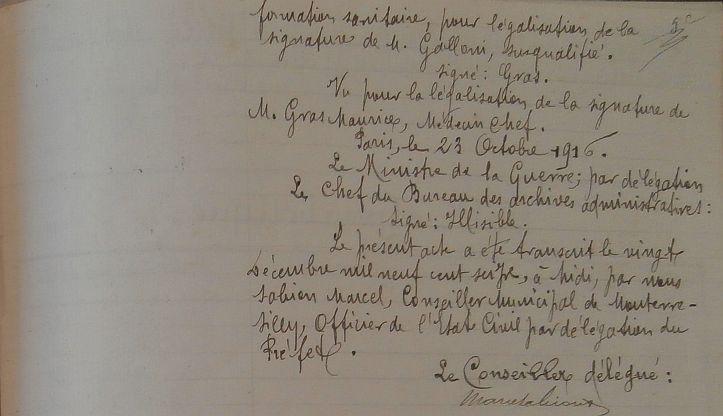 formation sanitaire, pour légalisation de la
signature de M. Galloni, susqualifié.
signé: Gras.
Vu pour la légalisation de la signature de
M. Gras Maurice, Médecin chef.
Paris, le 23 Octobre 1916.
Le Ministre de la Guerre; par délégation
Le Chef du Bureau des archives administratives:
signé: Illisible.
Le présent acte a été transcrit le vingt
Décembre mil neuf cent seize, à midi, par nous
Marcel, Conseiller Municipal de Monterre-
Silly, Officier de l'Etat Civil par délégation du
Préfet.
Le Conseiller délégué: